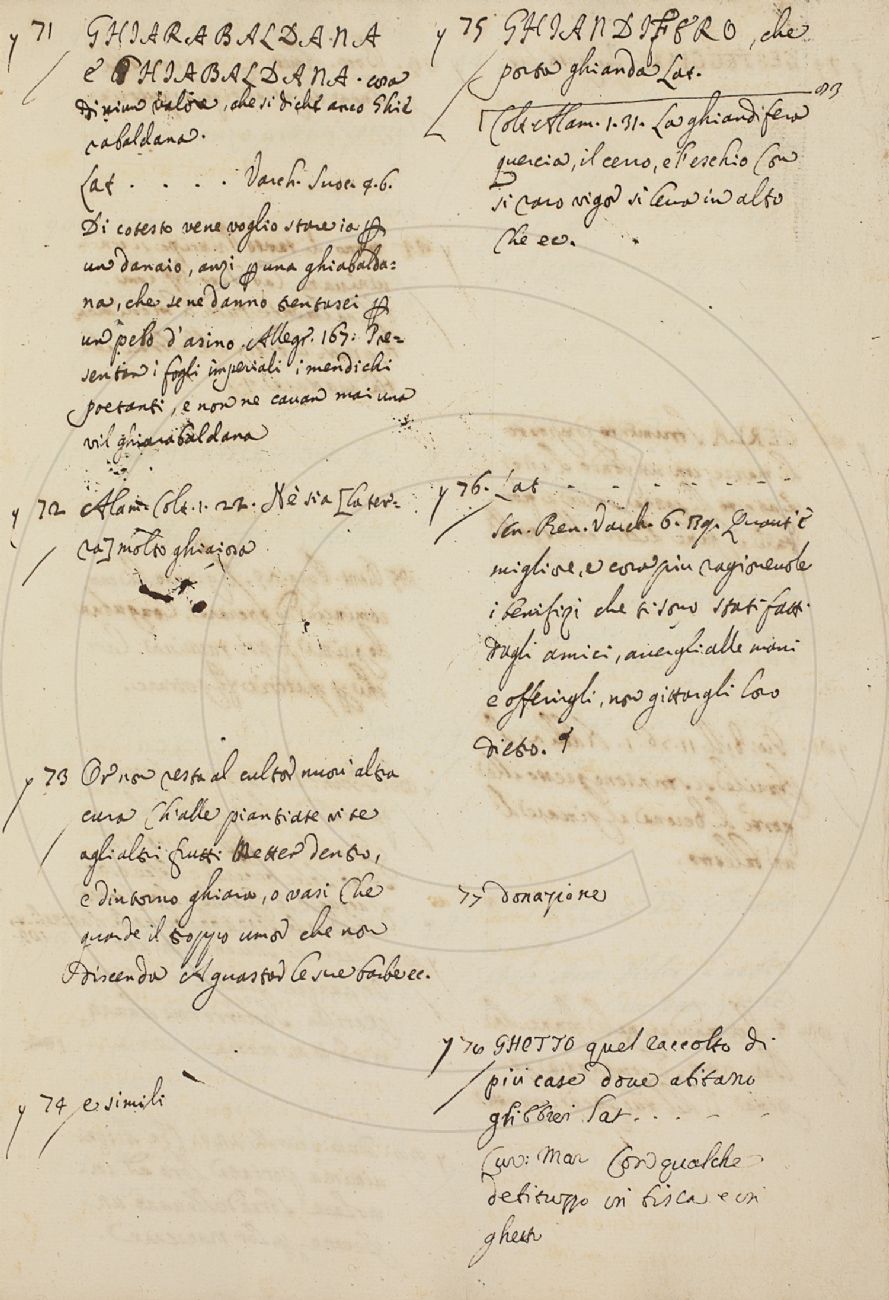 y 71 GHIARABALDANA
e GHIABALDANA. cosa
di niun valore, che si dicht anco Ghie
rabaldana.
Lat . . . . Varch. Suoc. 4. 6.
Di cotesto vene voglio stare io ꝑ
un danaio, anzi ꝑ una ghiabalda=
na, che sene danno trentasei ꝑ
un pelo d'asino. Allegr. 167: Pre=
sentan i fogli imperiali i mendichi
poetanti, e non ne cavan mai una
vil ghiarabaldana
y 72 Alam. Colt. 1. 22. Nè sia [la ter=
ra] molto ghiaiosa
y 73 Or non resta al cultor nuov' altra
cura Ch'alle piantate vite
agli altri frutti Metter dentro,
e dintorno ghiara, o vasi Che
guarde il troppo umor che non
discenda A guastar le sue barbe ec.
y 74 e simili
y 75 GHIANDIFERO, che
porta ghianda Lat.
Colt. Alam. 1. 31. La ghiandifera
quercia, il cerro, e l'eschio Con
sì raro vigor si leva in alto
Che ec.
y 76. Lat - - - - - - -
Sen. Ben. Varch. 6. Quant'è
migliore, e cosa piu ragionevole
i benifizi che ti sono stati fatti
dagli amici, avergli alle mani
e offerirgli, non gittargli loro
dietro.
77 donazione
y 70 GHETTO quel raccolto di
più case dove abitano
gli Ebrei Lat. . . - - -
Cur: Mar Con qualche
detituzzo in tisca e in
ghetto